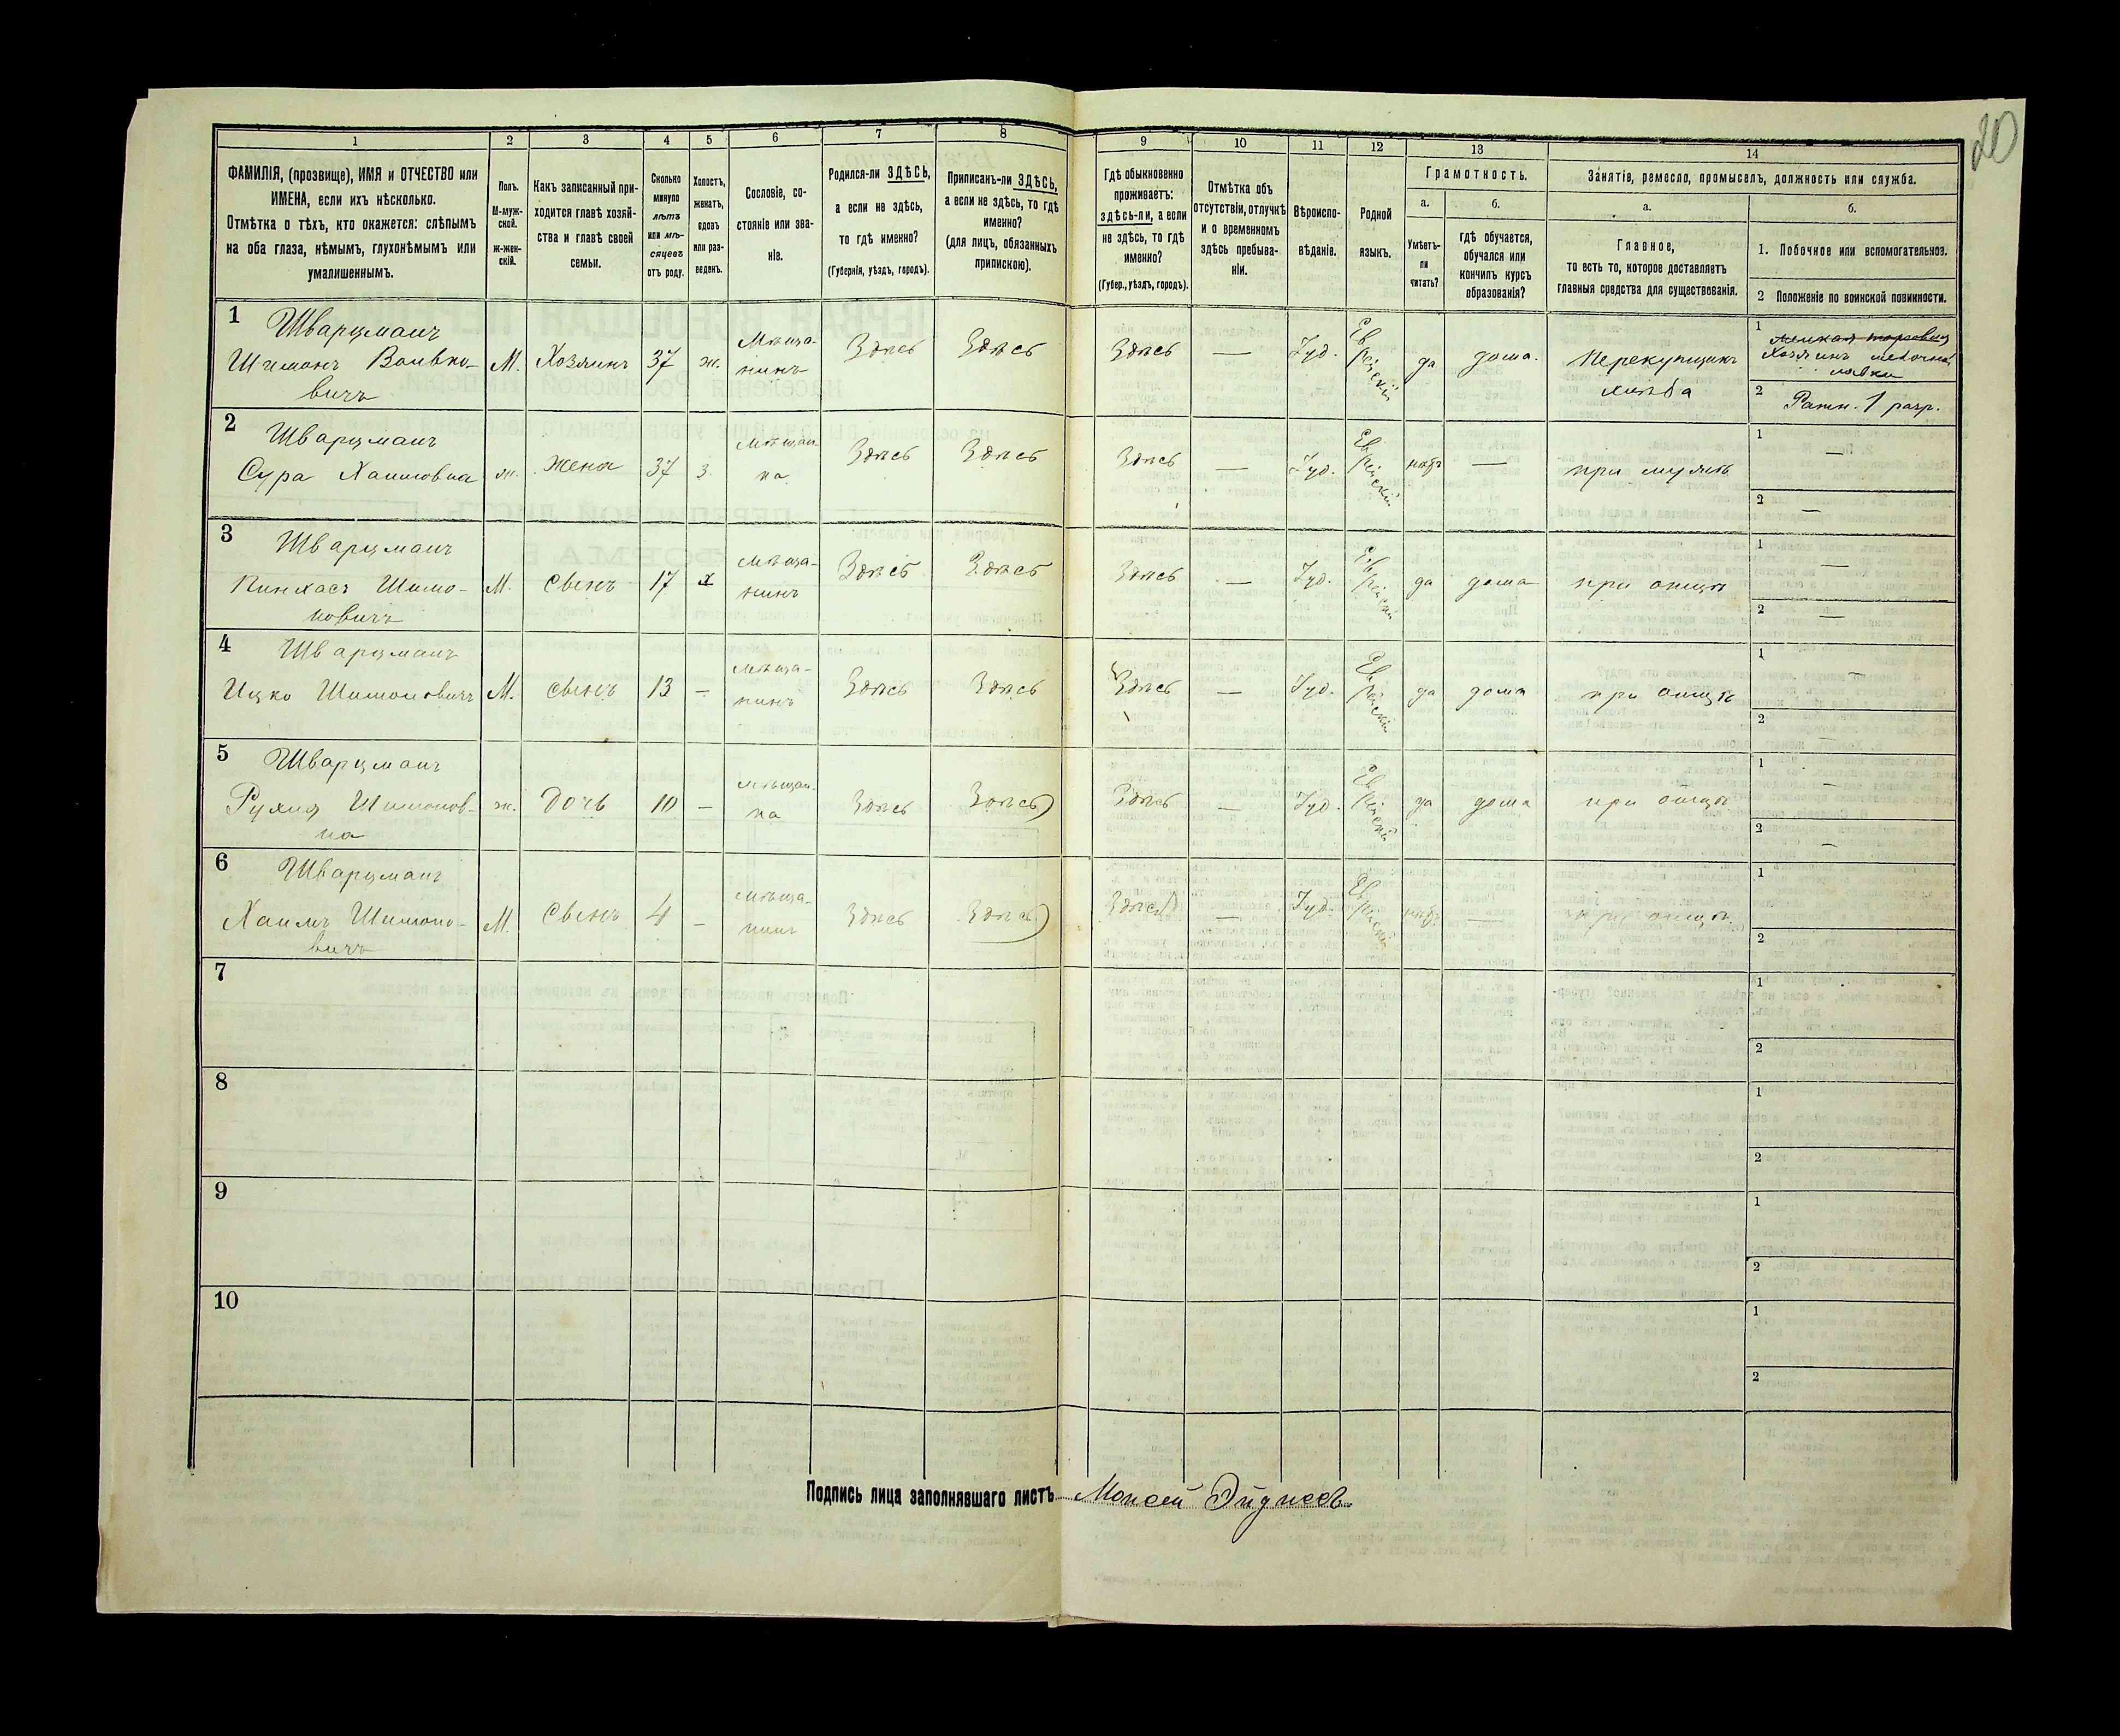 20
1 2 3 4 5 6 7 8 9 10 11 12 13 14
ФАМИЛІЯ, (прозвище), ИМЯ и ОТЧЕСТВО или
ИМЕНА, если ихъ нѣсколько.
Отмѣтка о тѣхъ, кто окажется: слѣпымъ
на оба глаза, нѣмымъ, глухонѣмымъ или
умалишеннымъ.
Полъ.
М-муж-
ской.
Ж-жен-
скій.
Какъ записанный при-
ходится главѣ хозяй-
ства и главѣ своей
семьи.
Сколько
минуло
лѣтъ
или мѣ-
сяцевъ
отъ роду.
Холостъ,
женатъ,
вдовъ
или раз-
веденъ.
Сословіе, со-
стояніе или зва-
ніе.
Родился-ли ЗДѢСЬ,
а если не здѣсь,
то гдѣ именно?
(Губернія, уѣздъ, городъ).
Приписанъ-ли ЗДѢСЬ,
а если не здѣсь, то гдѣ
именно?
(для лицъ, обязанныхъ
припискою).
Гдѣ обыкновенно
проживаетъ:
здѣсь-ли, а если
не здѣсь, то гдѣ
именно?
(Губер., уѣздъ, городъ).
Отмѣтка объ
отсутствіи, отлучкѣ
и о временномъ
здѣсь пребыва-
ніи.
Вѣроиспо-
вѣданіе.
Родной
языкъ.
Грамотность.
а.
Умѣетъ-
ли
читать?
б.
гдѣ обучается,
обучался или
кончилъ курсъ
образованія?
Занятіе, ремесло, промыселъ, должность или служба.
а.
Главное,
то есть то, которое доставляетъ
главныя средства для существованія.
б.
1. Побочное или вспомогательное.
2 Положеніе по воинской повинности.
1
Шварцманъ
Шимонъ Волько-
вичъ
М.
Хозяинъ
37
ж.
Мѣща-
нинъ
Здѣсь
Здѣсь
Здѣсь
—
Іуд.
Ев
рейскій
да
дома.
Перекупщикъ
хлѣба
1
мелкая торговля
Хозяинъ мелочной
лавки
2
Ратн. 1 разр.
2
Шварцманъ
Сура Хаимовна
ж.
Жена
37
з.
мѣщан-
ка
Здѣсь
Здѣсь
Здѣсь
—
Іуд.
Ев
рейскій
нѣтъ
—
при мужѣ
1
—
2
—
3
Шварцманъ
Пинхасъ Шимо-
новичъ
М.
Сынъ
17
х
мѣща-
нинъ
Здѣсь
Здѣсь
Здѣсь
—
Іуд.
Ев
рейскій
да
дома
при отцѣ
1
—
2
—
4
Шварцманъ
Ицко Шимоновичъ
М.
сынъ
13
—
мѣща-
нинъ
Здѣсь
Здѣсь
Здѣсь
—
Іуд.
Ев
рейскій
да
дома
при отцѣ
1
—
2
—
5
Шварцманъ
Рухля Шимонов-
на
ж.
Дочь
10
—
мѣщан-
ка
Здѣсь
Здѣсь
Здѣсь
—
Іуд.
Ев
рейскій
да
дома
при отцѣ
1
—
2
—
6
Шварцманъ
Хаимъ Шимоно-
вичъ
М.
Сынъ
4
—
мѣща-
нинъ
Здѣсь
Здѣсь
Здѣсь
—
Іуд.
Ев
рейскій
нѣтъ
—
при отцѣ
1
2
7
1
2
8
1
2
9
1
2
10
1
2
Подпись лица заполнявшаго листъ Моисей